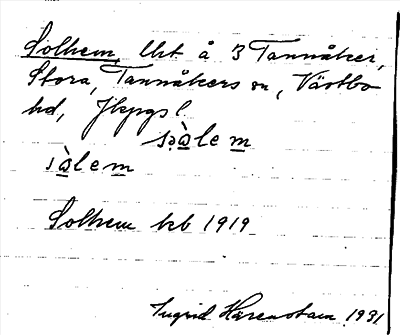 Solhem, lht å 3 Tannåker,
Stora, Tannåkers sn, Västbo
hd, Jkpgs l
sə̀lem
sàlem
Solhem krb 1919
Ingrid Havenstam 1931